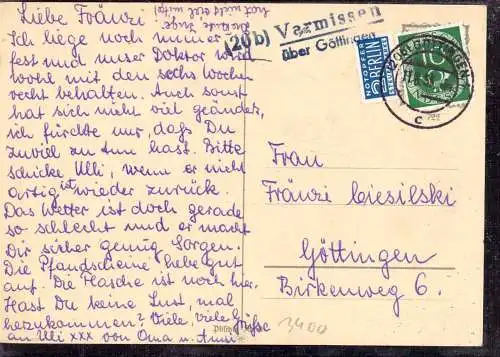 Liebe Fränzi!
Ich liege noch immer
fest und unser Doktor wird
wohl mit den sechs Wochen
recht behalten. Auch sonst
hat sich nicht viel geändert,
ich fürchte nur, daß Du
zuviel zu tun hast. Bitte
schicke Ulli, wenn er nicht
artig ist wieder zurück.
Das Wetter ist doch gerade
so schlecht und er macht
Dir sicher genug Sorgen.
Die Pfandscheine hebe gut
auf. Die Flasche ist noch hier.
Hast Du keine Lust, mal
herzukommen? Viele, viele Grüße
an Ulli xxx von Oma u.
(20b) Varmissen
über Göttingen
NOTOPFER
2 BERLIN
STEUERMARKE
GÖTTINGEN
c
10
Frau
Fränzi Ciesilski
Göttingen
Birkenweg 6.
3400